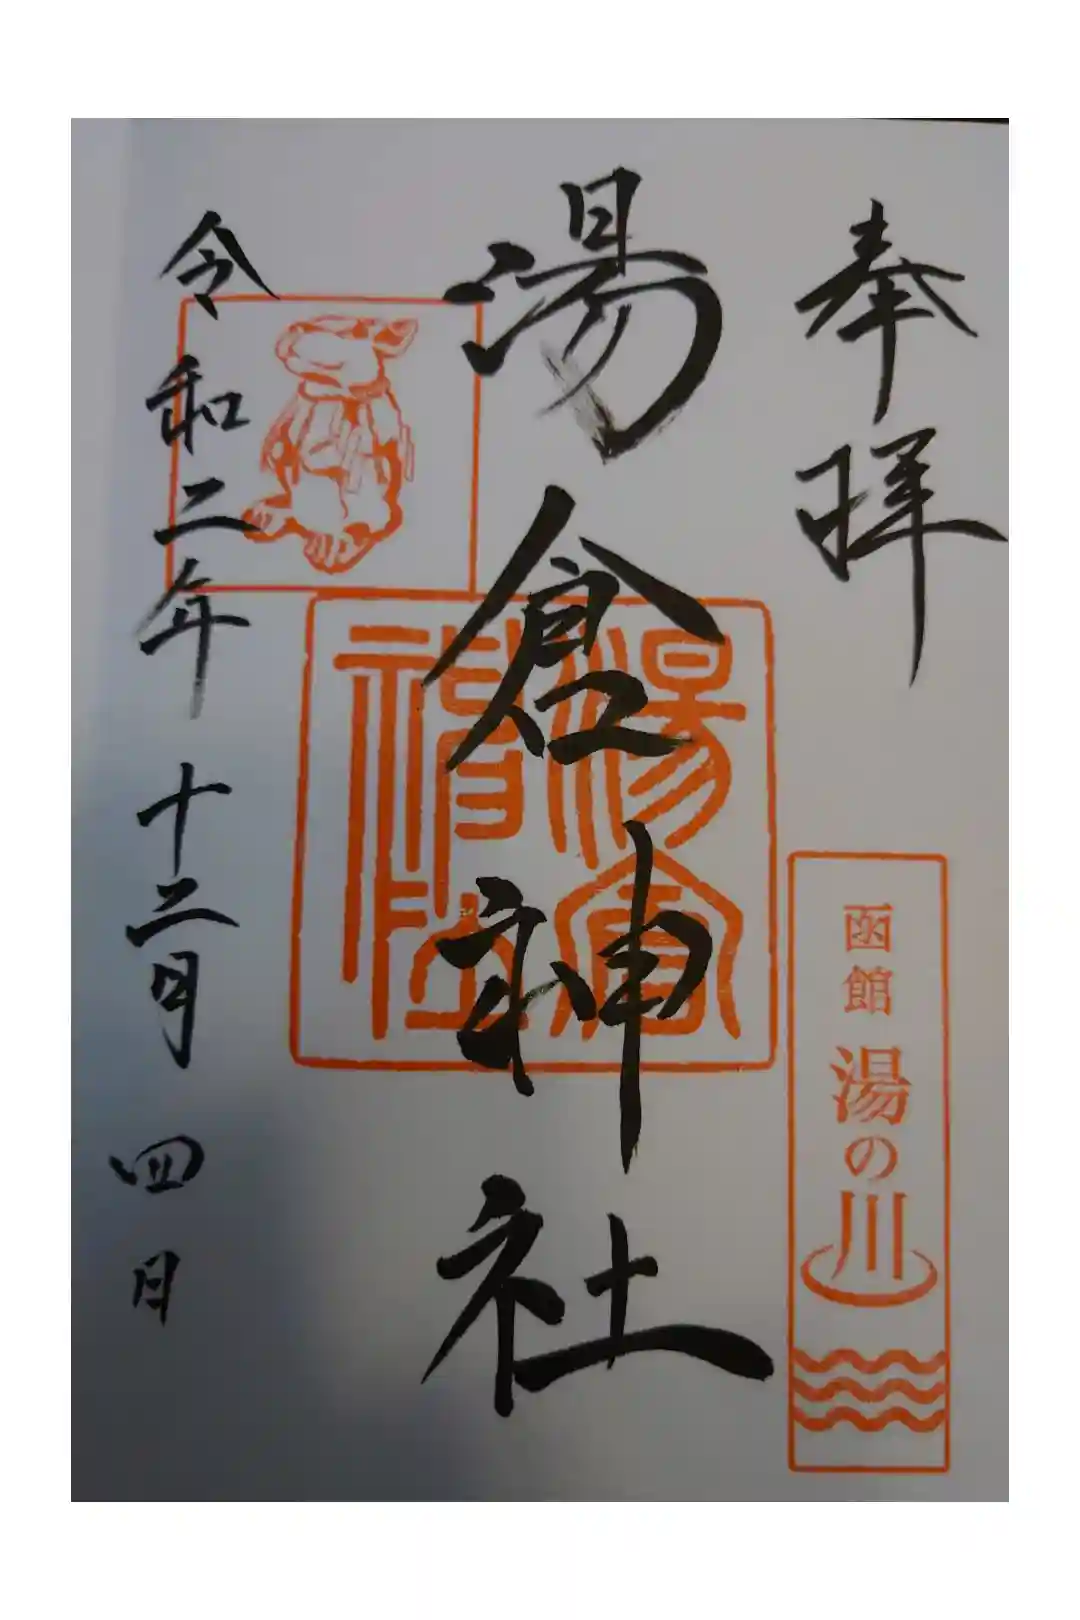 奉拝
函館 湯の川
湯倉神社
湯倉神社
令和二年十二月四日